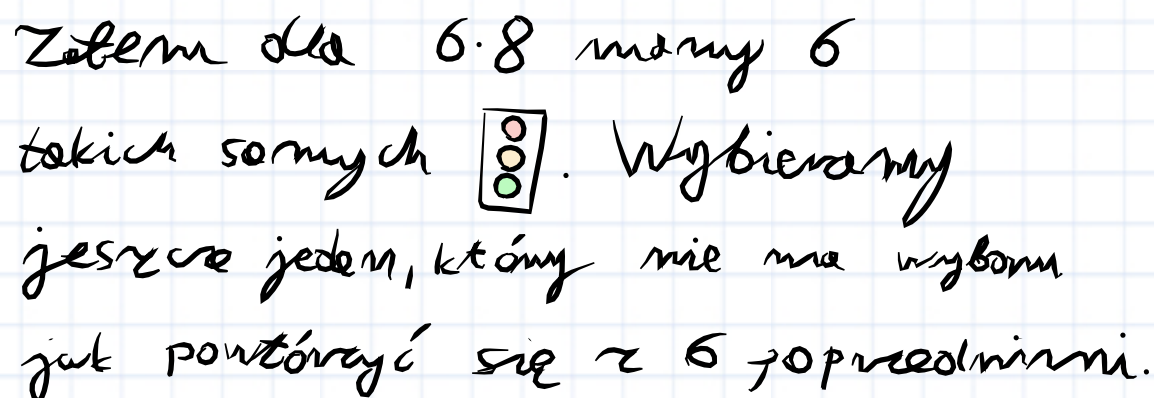 Zatem dla 6·8 mamy 6
takich samych . Wybieramy
jeszcze jeden, który nie ma wyboru
jak powtórzyć się z 6 poprzednimi.